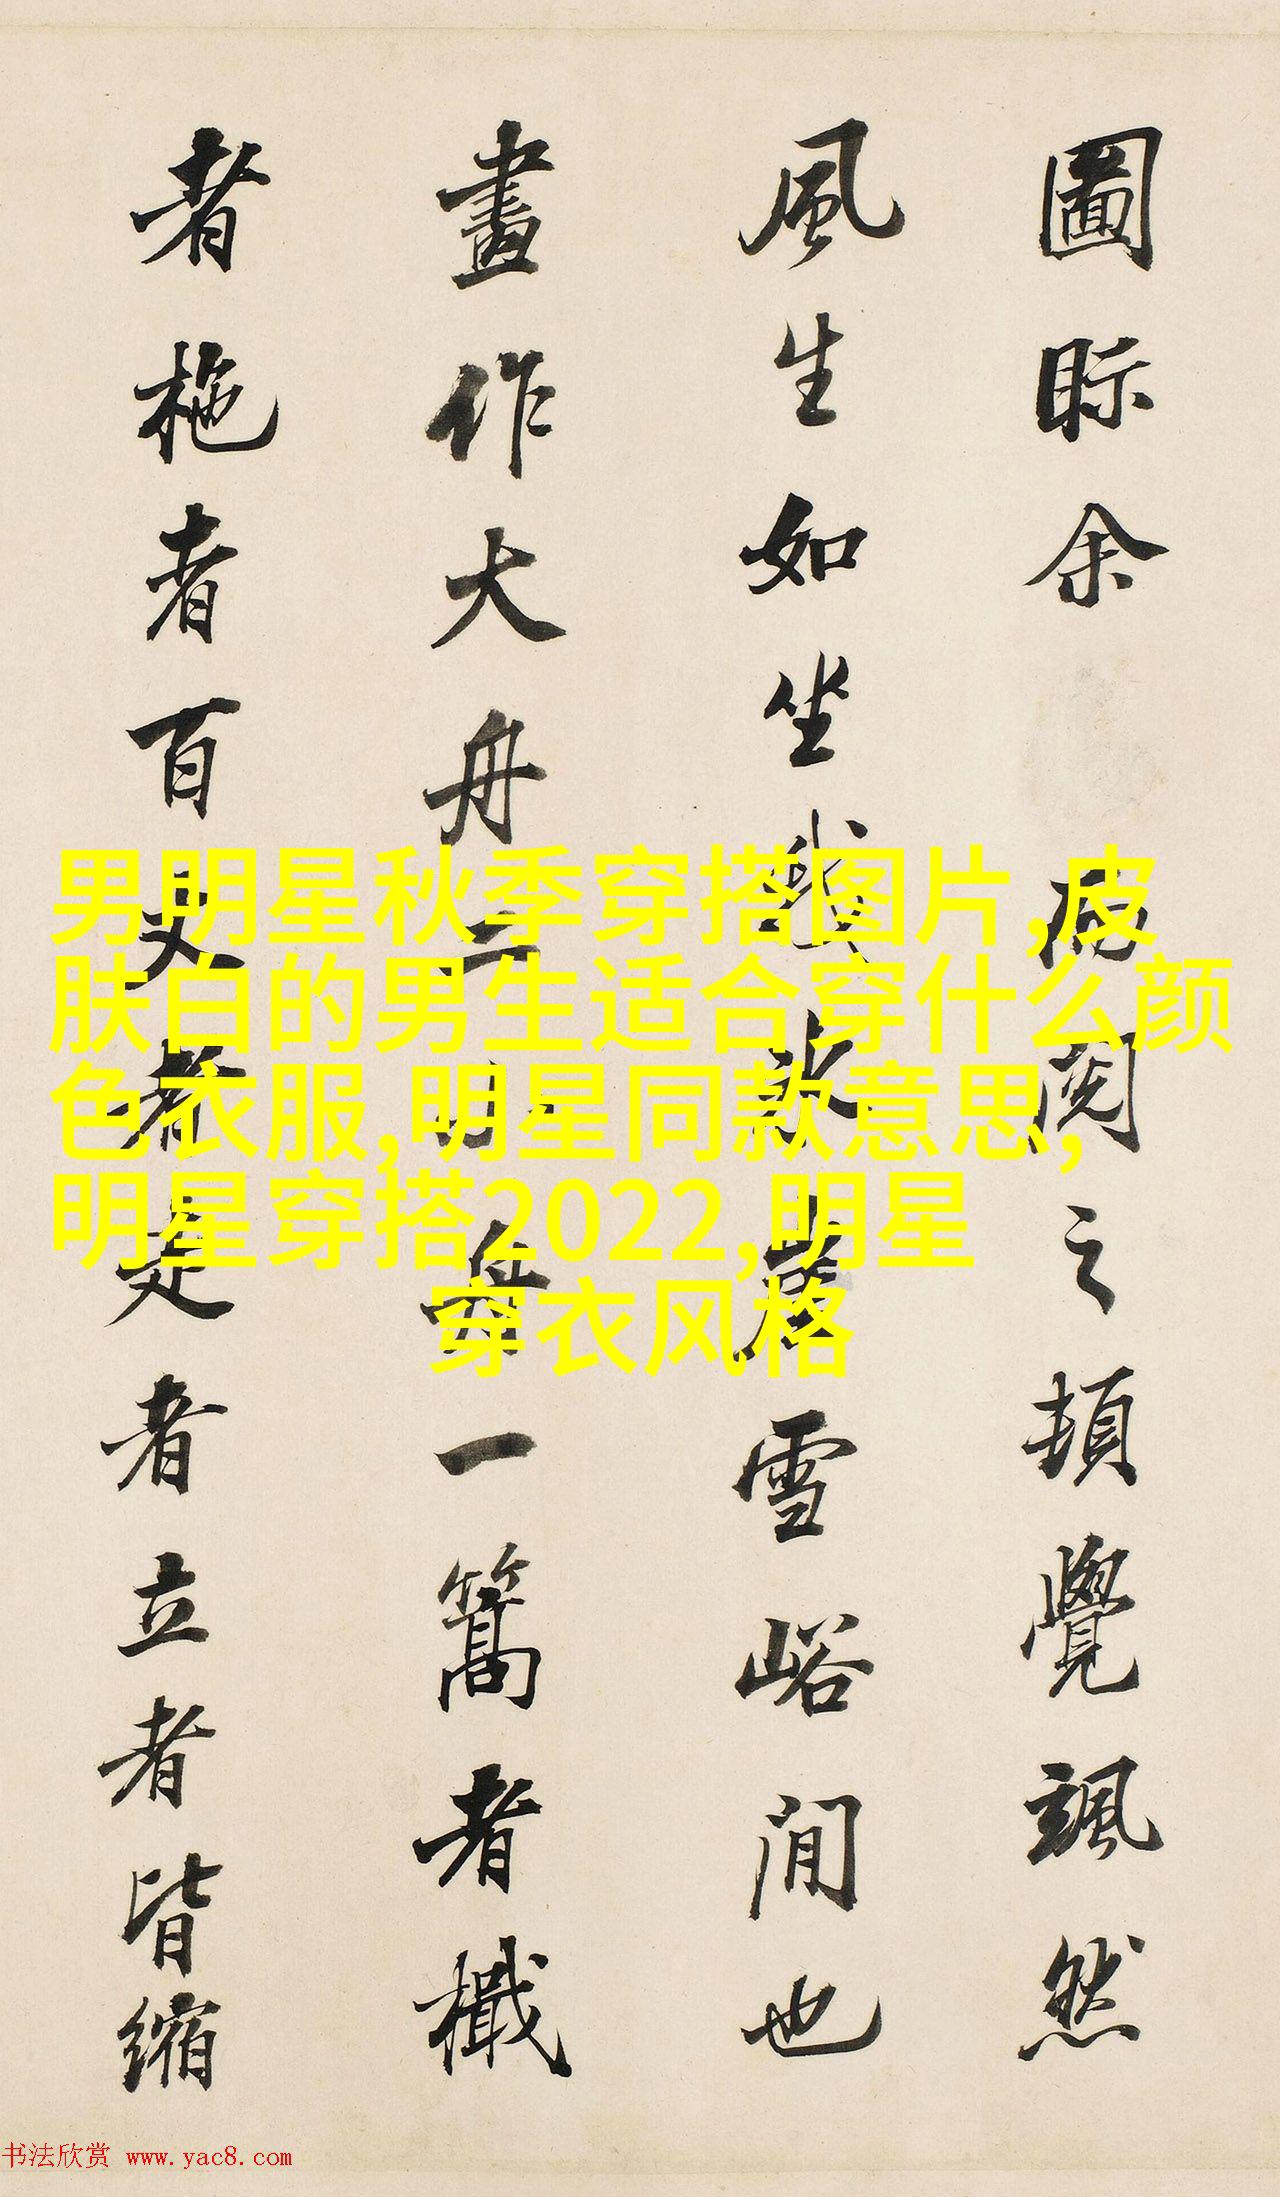 圖眎余病閱之頓覺颯然
風生如坐冰雪峪間也
畫作大舟三小舟一篙者檝
者柂者百丈者走者立者皆縮
男明星秋季穿搭图片,皮
肤白的男生适合穿什么颜
色衣服,明星同款意思,
明星穿搭2022,明星
穿衣风格
书法欣赏 www.yac8.com